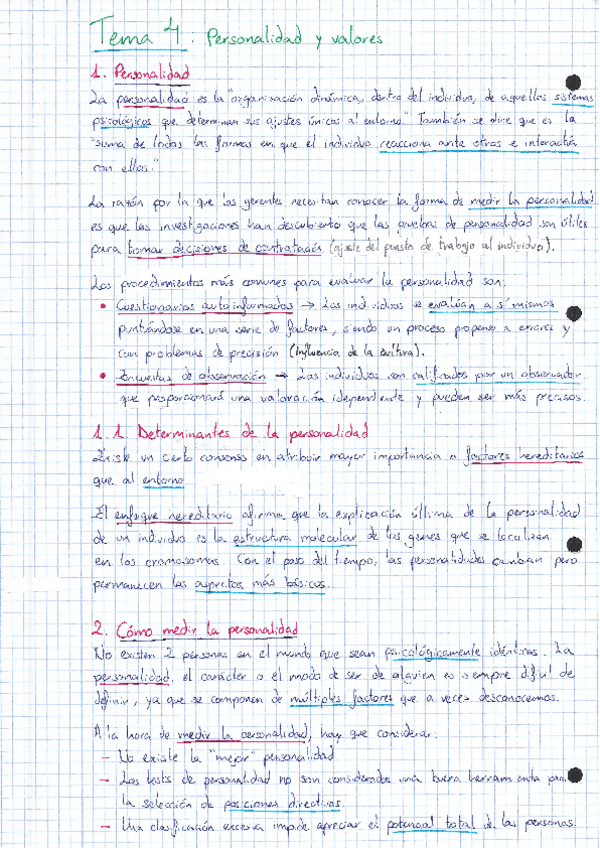 Tema 4: Personalidad y valores
1. Personalidad
La personalidad es la "organización dinámica, dentro del individuo, de aquellos sistemas
psicológicos que determinan sus ajustes únicos al entorno." También se dice que es la
"suma de todas las formas en que el individuo reacciona ante otros e interactúa
con ellos."
La razón por la que los gerentes necesitan conocer la forma de medir la personalidad
es que las investigaciones han descubierto que las pruebas de personalidad son útiles
para tomar decisiones de contratación (ajuste del puesto de trabajo al individuo).
Los procedimientos más comunes para evaluar la personalidad son:
• Cuestionarios autoinformados → Los individuos se evalúan a sí mismos
puntuándose en una serie de factores, siendo un proceso propenso a errores y
con problemas de precisión (influencia de la cultura).
• Encuestas de observación → Los individuos son calificados por un observador
que proporcionará una valoración idependiente y pueden ser más precisos.
1.1. Determinantes de la personalidad
Existe un cierto consenso en atribuir mayor importancia a factores hereditarios
que al entorno
El enfoque hereditario afirma que la explicación última de la personalidad
de un individuo es la estructura molecular de los genes que se localizan
en los cromosomas. Con el paso del tiempo, las personalidades cambian pero
permanecen los aspectos más básicos.
2. Cómo medir la personalidad
No existen 2 personas en el mundo que sean psicológicamente idénticas. La
personalidad, el carácter o el modo de ser de alguien es siempre difícil de
definir, ya que se componen de múltiples factores que a veces desconocemos.
A la hora de medir la personalidad, hay que considerar:
- No existe la "mejor" personalidad
- Los tests de personalidad no son considerados una buena herramienta para
la selección de posiciones directivas.
- Una clasificación excesiva impide apreciar el potencial total de las personas.